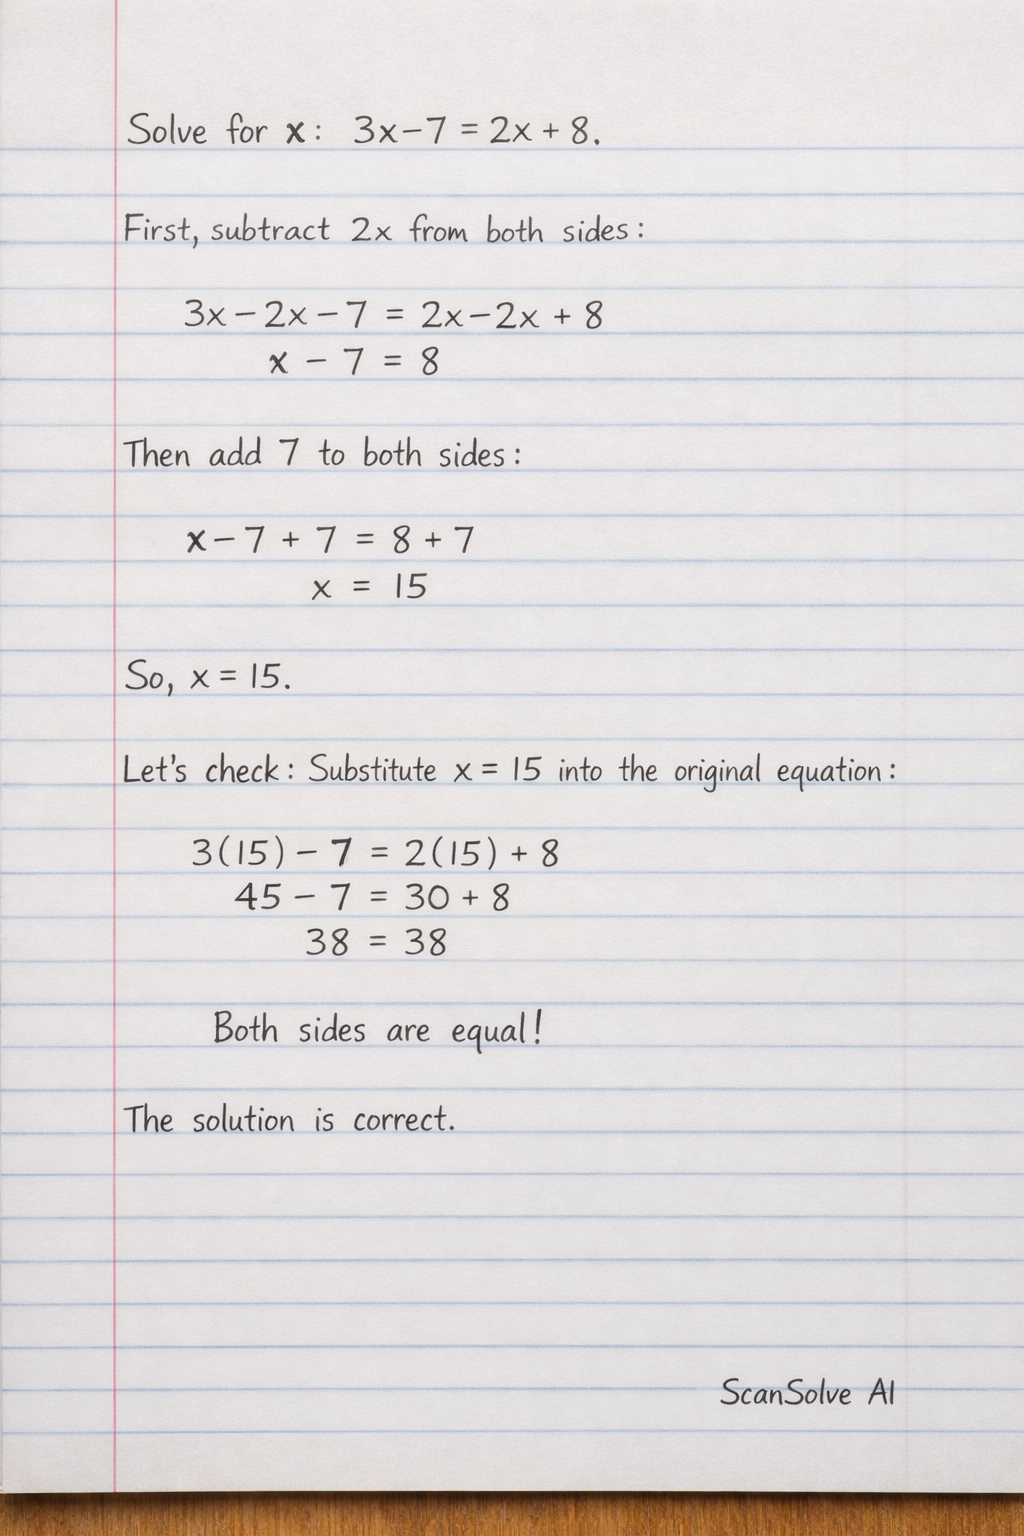 Solve for x: 3x-7 = 2x + 8.
First, subtract 2x from both sides:
3x - 2x - 7 = 2x - 2x + 8
x - 7 = 8
Then add 7 to both sides:
x - 7 + 7 = 8 + 7
x = 15
So, x = 15.
Let's check: Substitute x = 15 into the original equation:
3(15) - 7 = 2(15) + 8
45 - 7 = 30 + 8
38 = 38
Both sides are equal!
The solution is correct.
ScanSolve AI